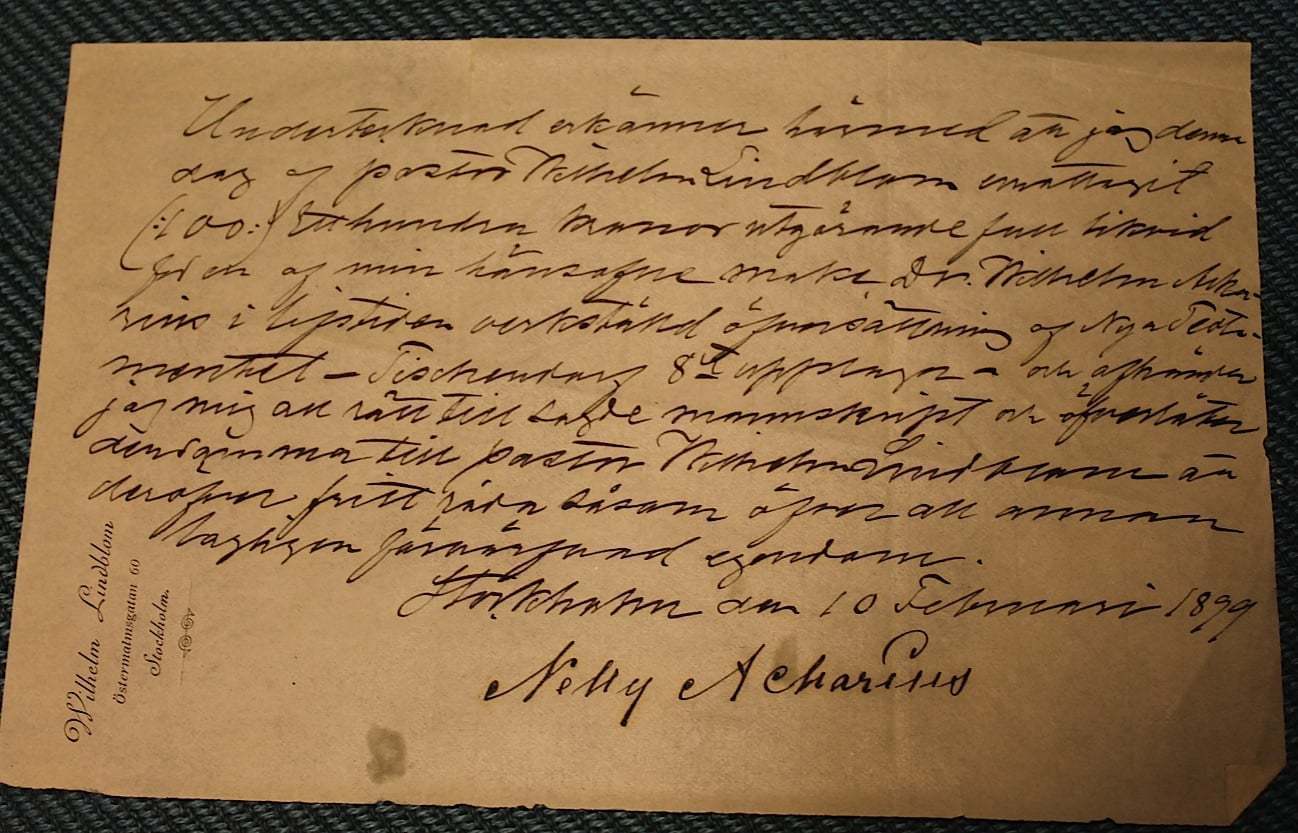 Undertecknad erkänner härmed att jag denna
dag af pastor Wilhelm Lindblom emottagit
(:100:) Etthundra kronor utgörande full likvid
för en af min hänsofne make, Dr. Wilhelm Acha-
rius i lifstiden verkstäld öfversättning af Nya Testa-
mentet – Tischendorfs 8de upplaga – och afhänder
jag mig all rätt till sagde manuskript och öfverlåter
densamma till pastor Wilhelm Lindblom att
deröfver fritt råda såsom öfver all annan
lagligen förvärfvad egendom.
Stockholm den 10 Februari 1899
Nelly Acharius
Wilhelm Lindblom
Östermalmsgatan 60
Stockholm.